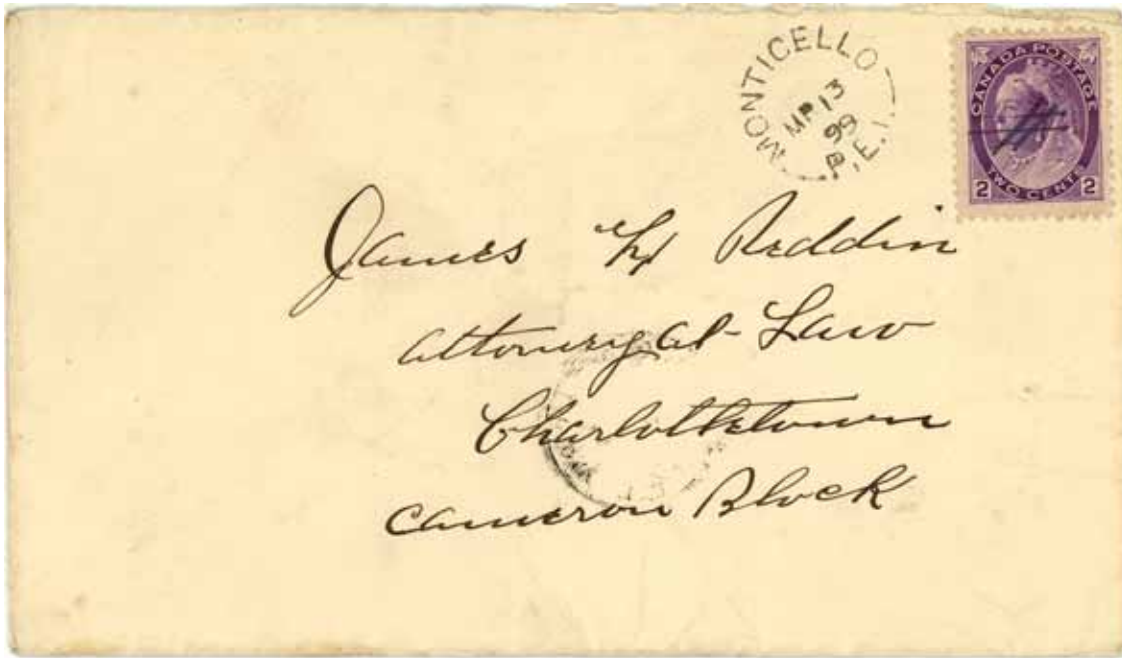 MONTICELLO
MR 13
99
P.E.I.
CANADA POSTAGE
TWO CENTS
2 2
James H Reddin
Attorney at Law
Charlottetown
Cameron Block